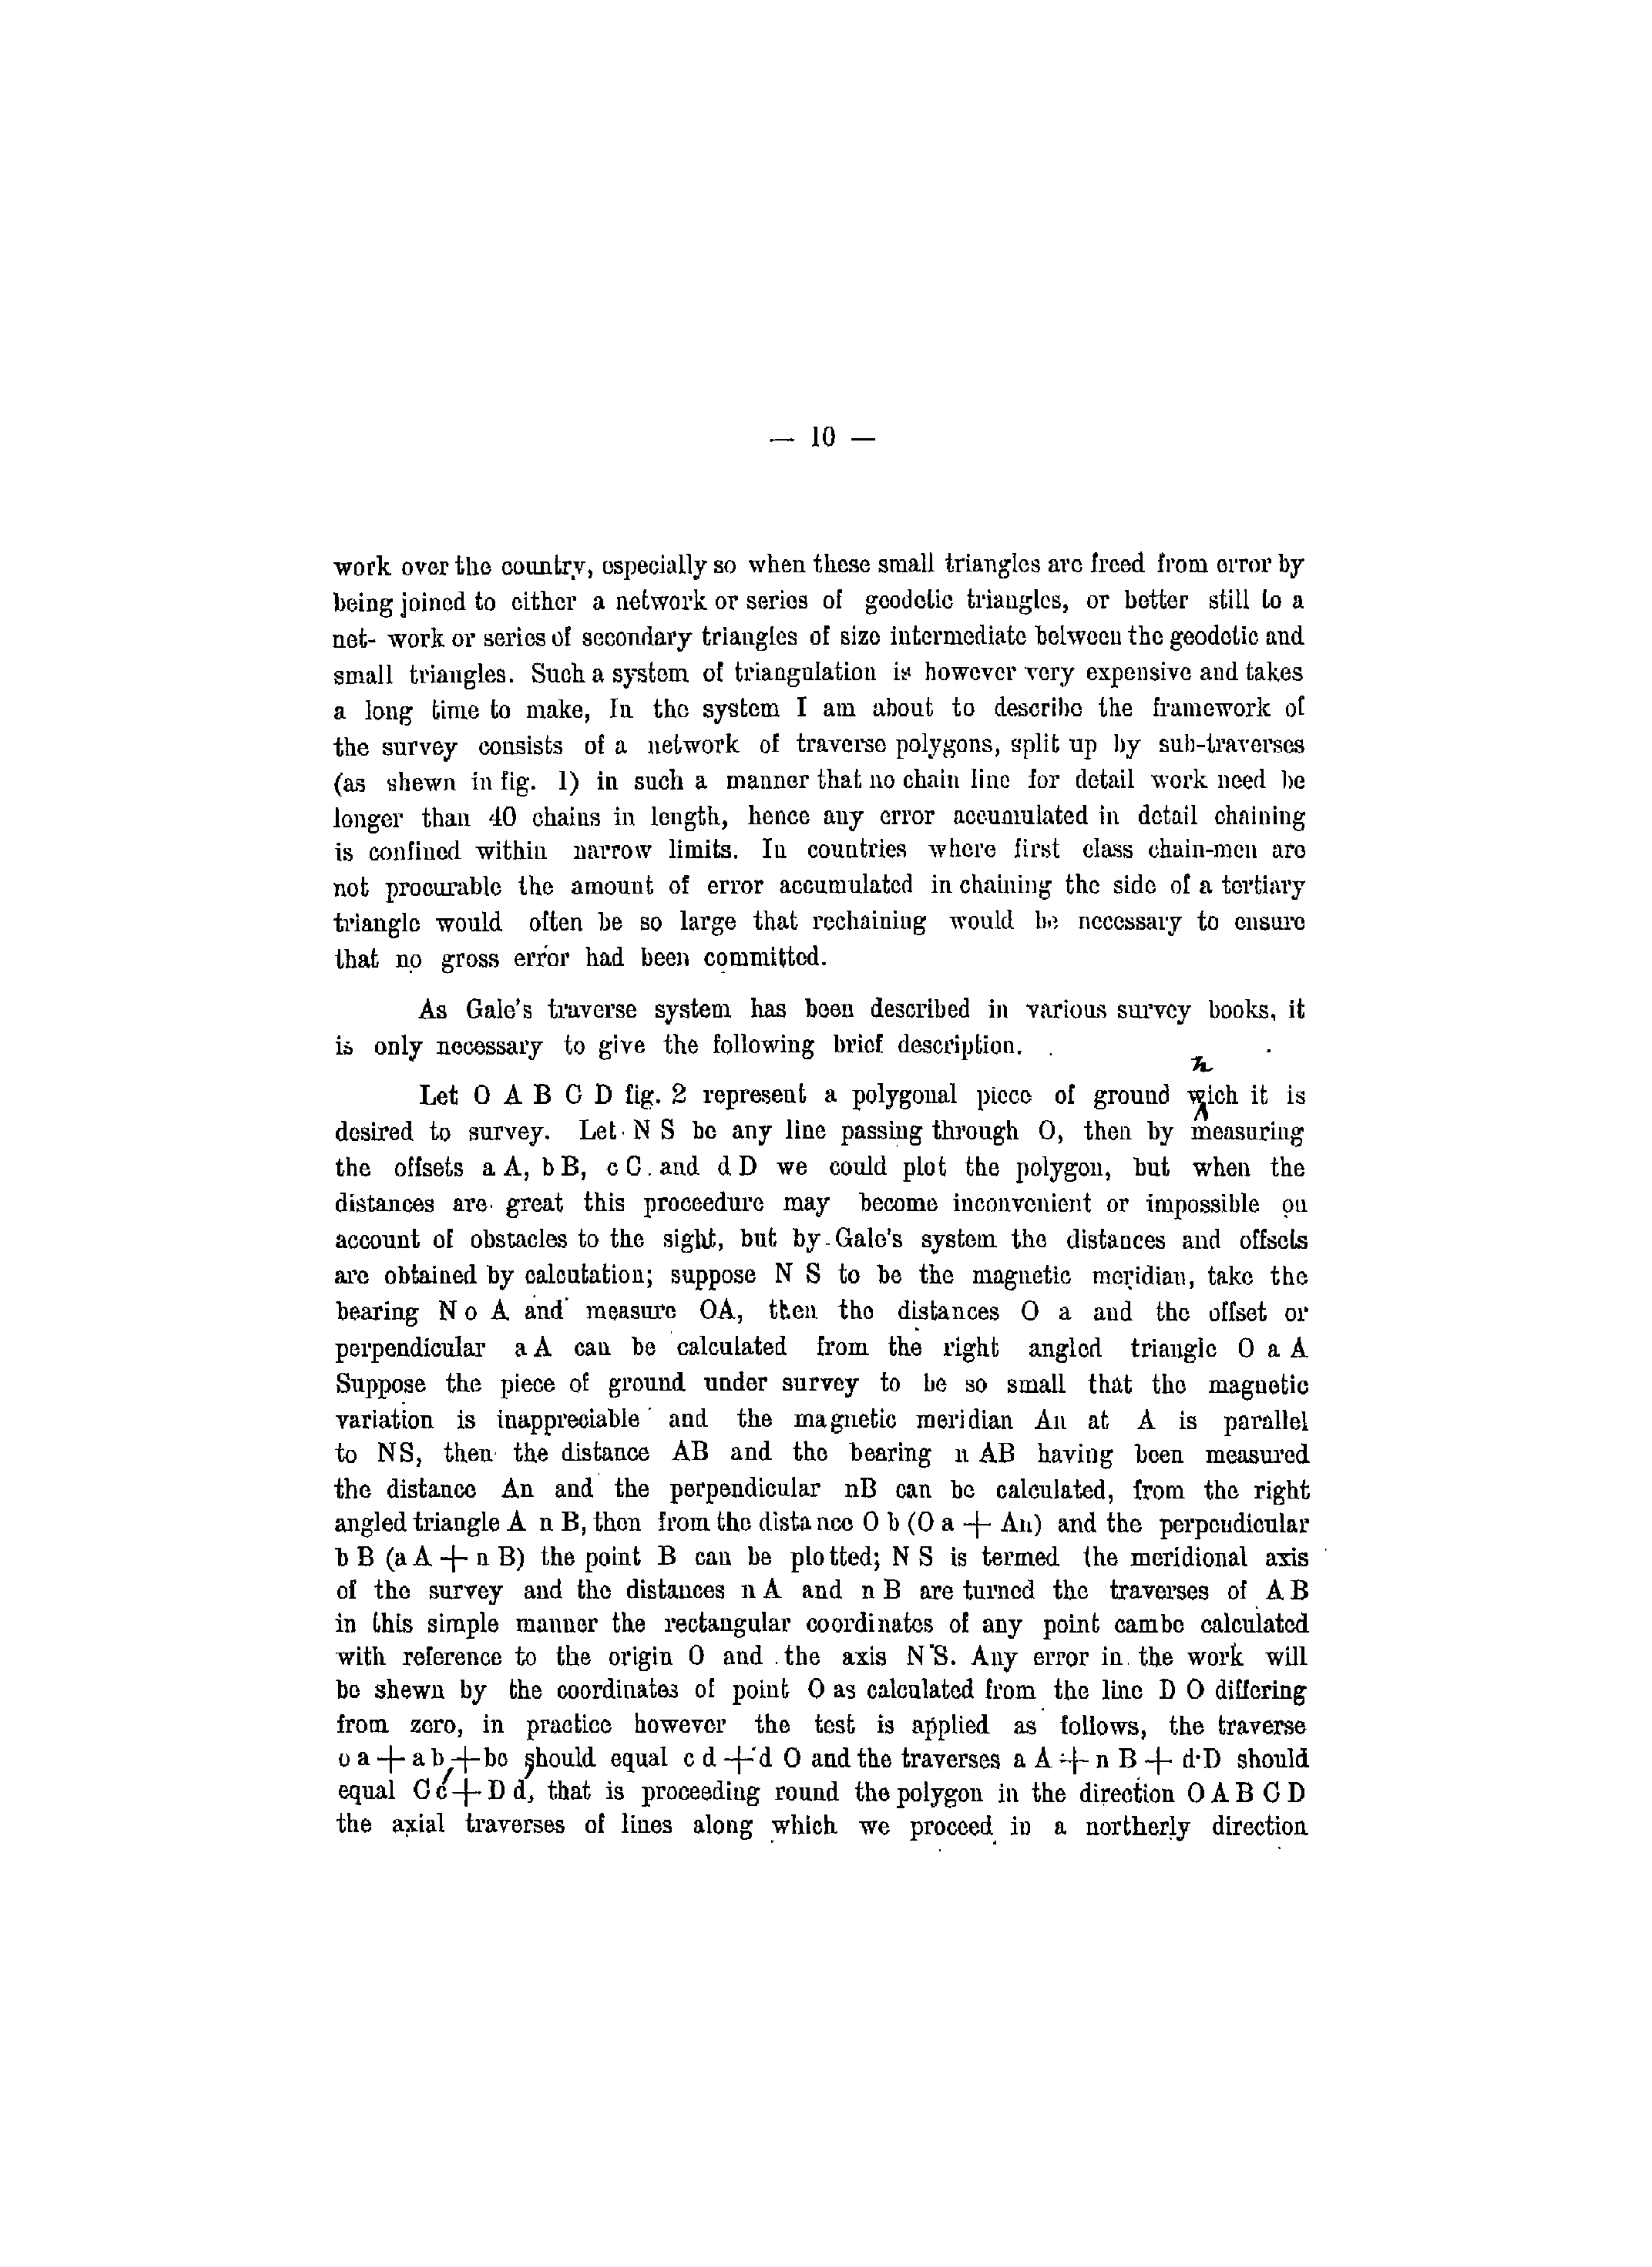 — 10 —
work over the country, especially so when these small triangles are freed from error by
being joined to either a network or series of geodetic triangles, or better still to a
net- work or series of secondary triangles of size intermediate between the geodetic and
small triangles. Such a system of triangulation is however very expensive and takes
a long time to make, In the system I am about to describe the framework of
the survey consists of a network of traverse polygons, split up by sub-traverses
(as shewn in fig. 1) in such a manner that no chain line for detail work need be
longer than 40 chains in length, hence any error accumulated in detail chaining
is confined within narrow limits. In countries where first class chain-men are
not procurable the amount of error accumulated in chaining the side of a tertiary
triangle would often be so large that rechaining would be necessary to ensure
that no gross error had been committed.
As Gale's traverse system has been described in various survey books, it
is only necessary to give the following brief description.
h
Let O A B C D fig. 2 represent a polygonal piece of ground wich it is
desired to survey. Let N S be any line passing through O, then by measuring
the offsets a A, b B, c C. and d D we could plot the polygon, but when the
distances are great this proceedure may become inconvenient or impossible on
account of obstacles to the sight, but by Gale's system the distances and offsets
are obtained by calcutation; suppose N S to be the magnetic meridian, take the
bearing N o A and measure OA, then the distances O a and the offset or
perpendicular a A can be calculated from the right angled triangle O a A
Suppose the piece of ground under survey to be so small that the magnetic
variation is inappreciable and the magnetic meridian An at A is parallel
to NS, then the distance AB and the bearing n AB having been measured
the distance An and the perpendicular nB can be calculated, from the right
angled triangle A n B, then from the distance O b (O a + An) and the perpendicular
b B (a A + n B) the point B can be plotted; N S is termed the meridional axis
of the survey and the distances n A and n B are turned the traverses of A B
in this simple manner the rectangular coordinates of any point cambe calculated
with reference to the origin O and the axis N S. Any error in the work will
be shewn by the coordinates of point O as calculated from the line D O differing
from zero, in practice however the test is applied as follows, the traverse
o a + a b, + bc should equal c d + d O and the traverses a A + n B + d D should
equal C c + D d, that is proceeding round the polygon in the direction O A B C D
the axial traverses of lines along which we proceed in a northerly direction